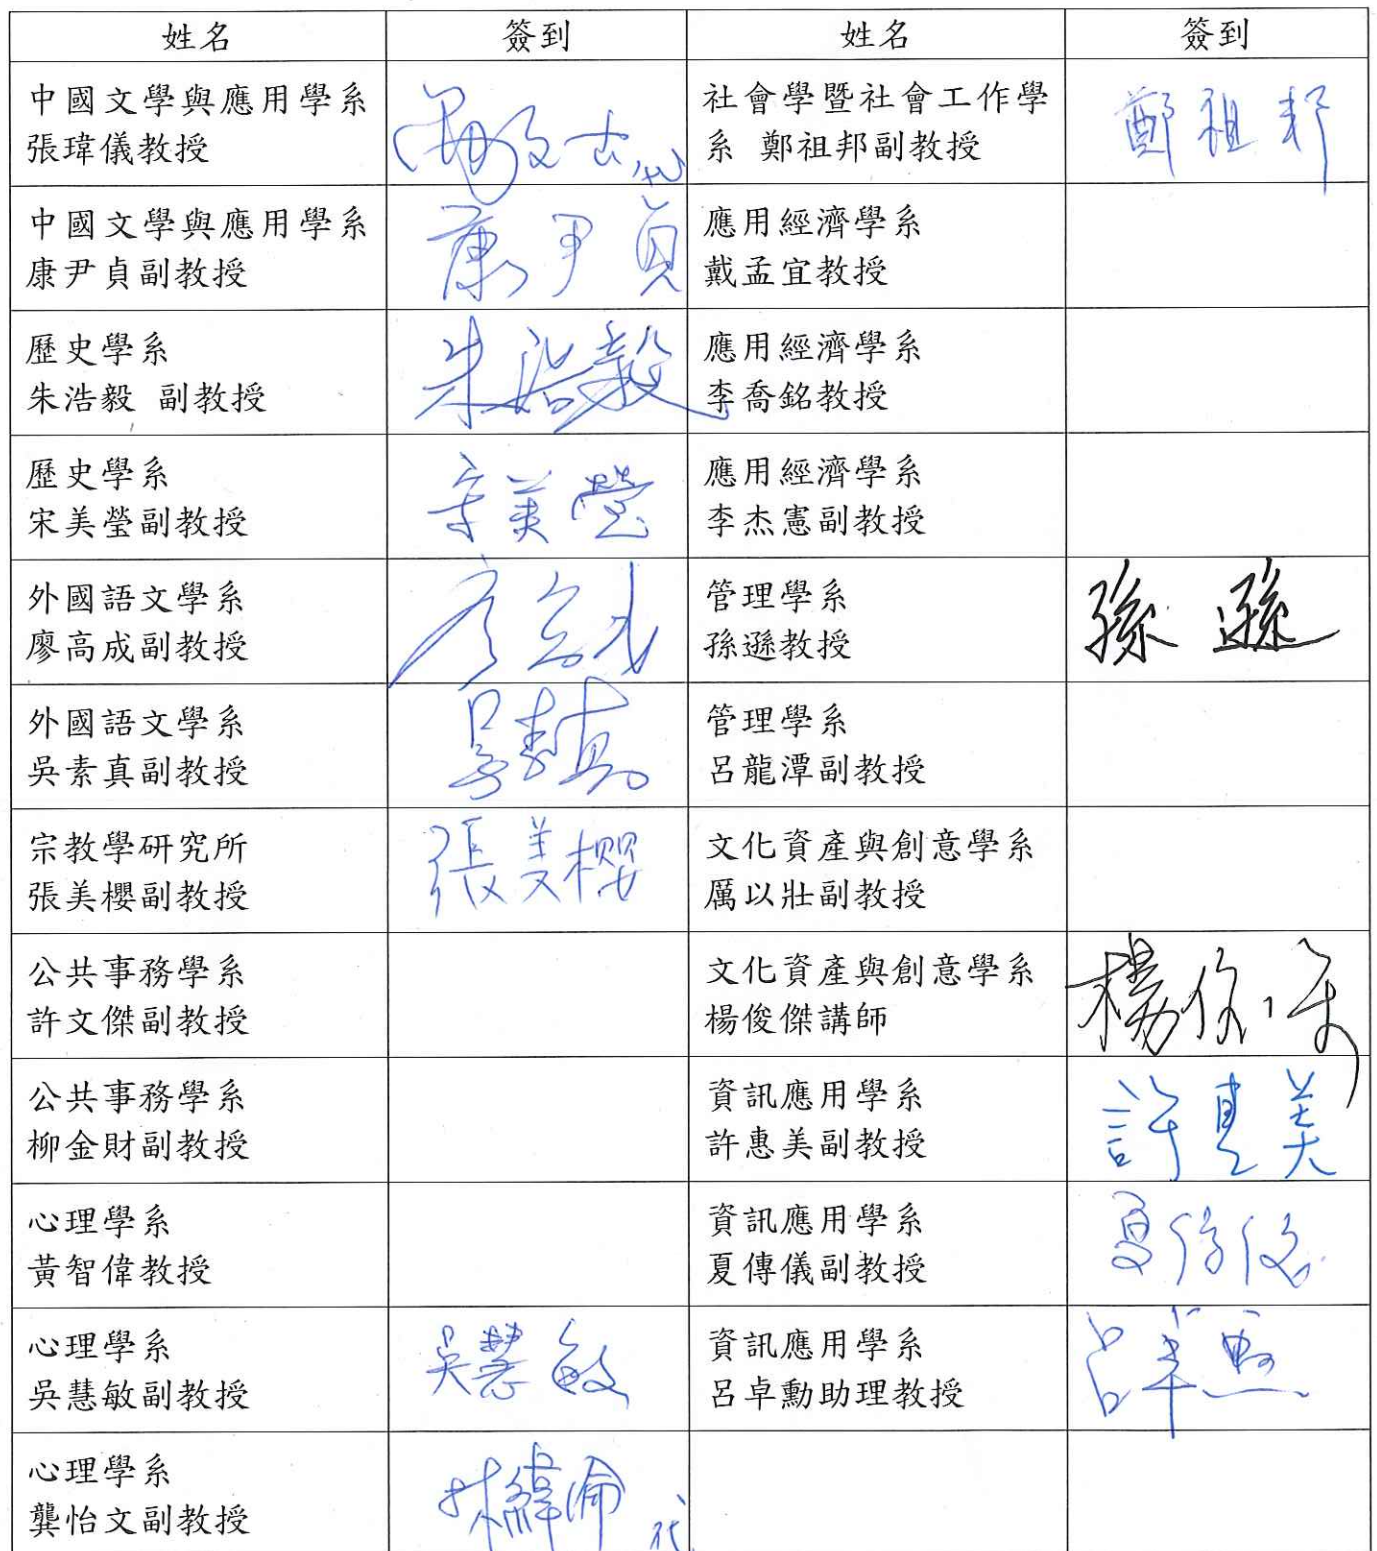 姓名 簽到 姓名 簽到
中國文學與應用學系
張瑋儀教授
代
社會學暨社會工作學
系 鄭祖邦副教授
鄭祖邦
中國文學與應用學系
康尹貞副教授
康尹貞
應用經濟學系
戴孟宜教授
歷史學系
朱浩毅 副教授
朱浩毅
應用經濟學系
李喬銘教授
歷史學系
宋美瑩副教授
宋美瑩
應用經濟學系
李杰憲副教授
外國語文學系
廖高成副教授
廖高成
管理學系
孫遜教授
孫遜
外國語文學系
吳素真副教授
吳素真
管理學系
呂龍潭副教授
宗教學研究所
張美櫻副教授
張美櫻
文化資產與創意學系
厲以壯副教授
公共事務學系
許文傑副教授
文化資產與創意學系
楊俊傑講師
楊俊傑
公共事務學系
柳金財副教授
資訊應用學系
許惠美副教授
許惠美
心理學系
黃智偉教授
資訊應用學系
夏傳儀副教授
夏傳儀
心理學系
吳慧敏副教授
吳慧敏
資訊應用學系
呂卓勳助理教授
呂卓勳
心理學系
龔怡文副教授
林緯倫 代